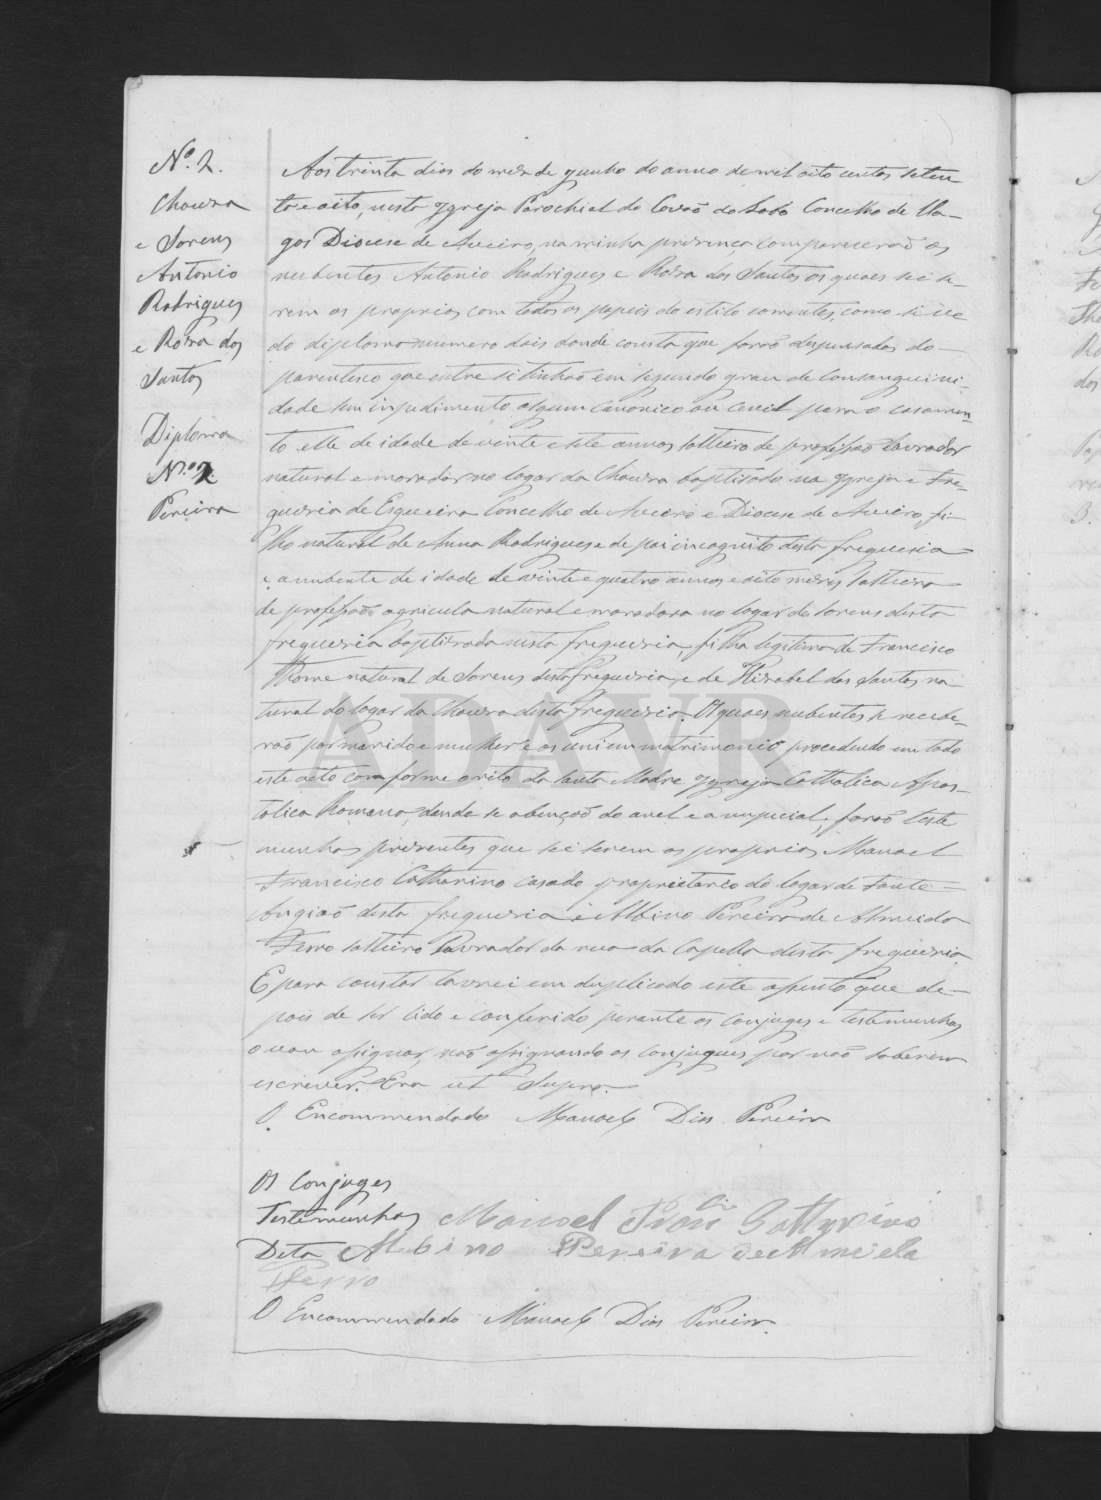 Nº. 2.
Chouza
e Sorens
Antonio
Rodrigues
e Roza dos
Santos
Diploma
Nº. 2.
Pereira
Aos trinta dias do mez de junho do anno de mil oito centos seten
ta e oito, nesta Igreja Parochial do Covaõ do Lobo Concelho de Va-
gos Diocese de Aveiro, na minha prezença compareceraõ os
nubentes Antonio Rodrigues e Roza dos Santos os quaes sei se-
rem os proprios com todos os papeis do estilo correntes, como se ve
do diploma numero dois donde consta que foraõ dispensados do
parentesco que entre si tinhaõ em segundo grau de consanguini-
dade sem impedimento algum canonico ou cevil para o casamen-
to elle de idade de vinte e sete annos solteiro de profissaõ lavrador
natural e morador no logar da Chouza baptisado na Igreja e Fre-
guezia de Esgueira Concelho de Aveiro e Diocese de Aveiro, fi-
lho natural de Anna Rodrigues e de pai incognito desta freguezia
e a nubente de idade de vinte e quatro annos e oito mezes solteira
de profissaõ agricula natural e moradora no logar de Sorens desta
freguezia baptizada nesta freguezia, filha legitima de Francisco
Thome natural de Sorens desta freguezia, e de Mizabel dos Santos na-
tural do logar da Chouza desta freguezia. Os quaes nubentes se recebe-
raõ por marido e mulher e os uni em matrimonio, procedendo em todo
este acto conforme o rito da Santa Madre Igreja Catholica Apos-
tolica Romana, dando se a bençaõ do anel e a nupcial, foraõ teste
munhas prezentes que sei serem os proprios Manoel
Francisco Catharino casado proprietario do logar de Fonte
Angiaõ desta freguezia e Albino Pereira de Almeida
Ferro solteiro lavrador da rua da Capella desta freguezia.
E para constar lavrei em duplicado este assento que de-
pois de ser lido e conferido perante os conjuges e testemunhas
o vou assignar, naõ assignando os conjugues por naõ saberem
escrever. Era ut supra.
O Encommendado Manoel Dias Pereira
Os Conjuges
Testemunhas Manoel Fran Cathrino
Dita Albino Pereira de Almeida
Ferro
O Encommendado Manoel Dias Pereira.
ADAVR